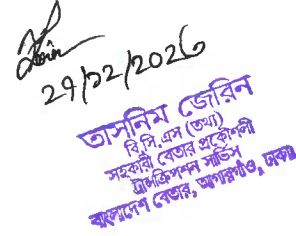 29/12/2026
তাসনিম জেরিন
বি.সি.এস (তথ্য)
সহকারী বেতার প্রকৌশলী
ট্রান্সক্রিপশন সার্ভিস
বাংলাদেশ বেতার, আগারগাঁও, ঢাকা